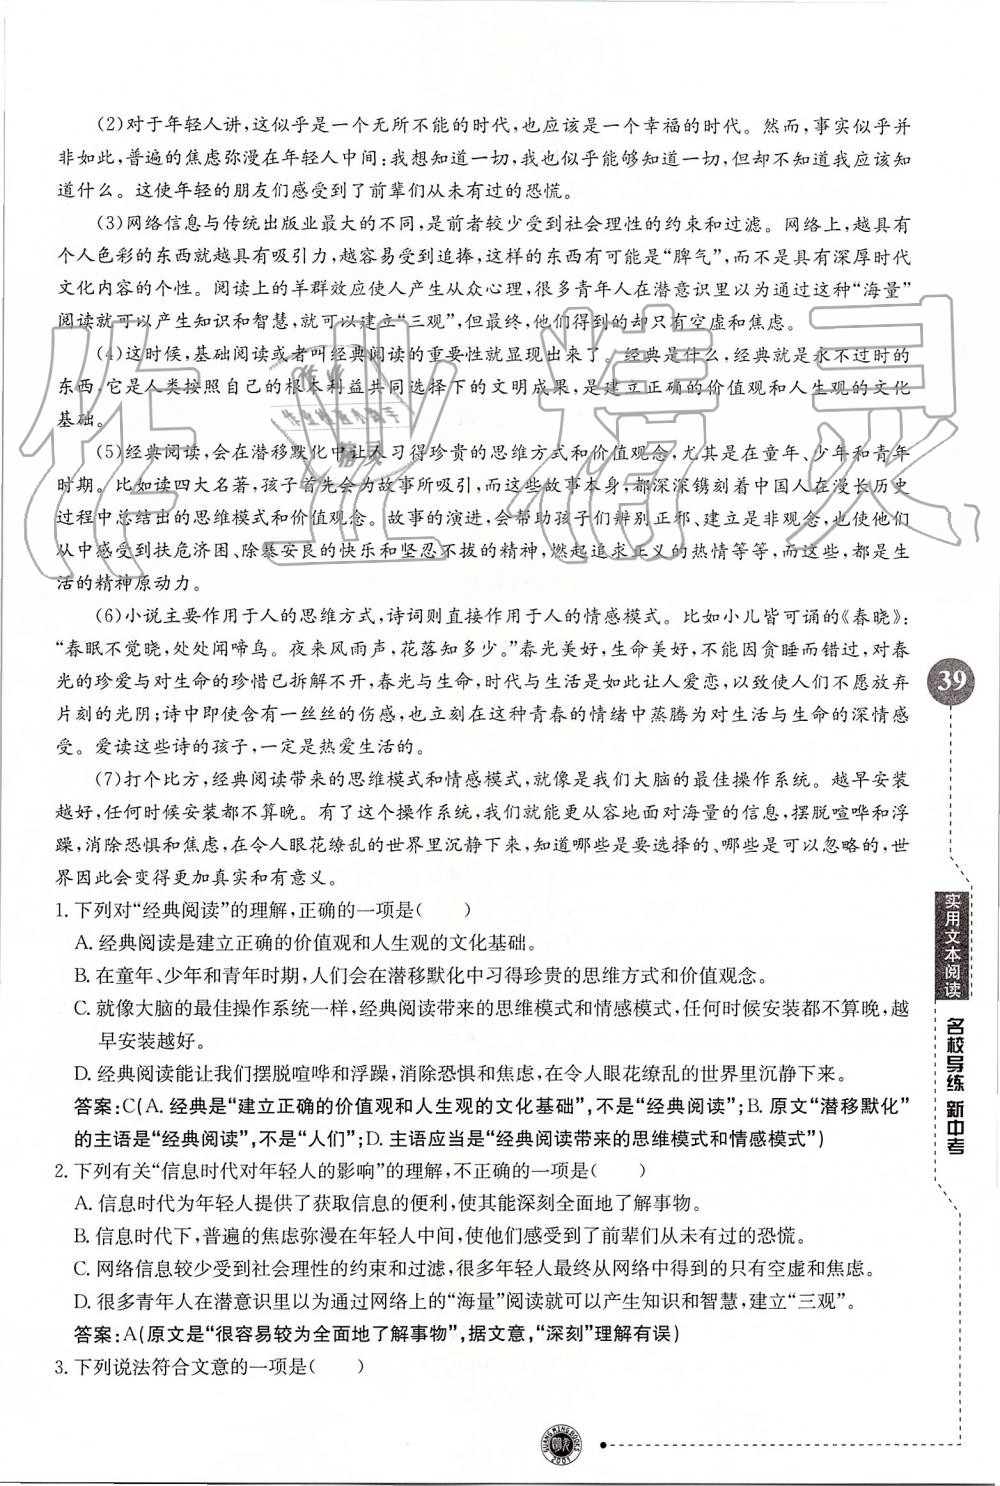 (2)对于年轻人讲,这似乎是一个无所不能的时代,也应该是一个幸福的时代。然而,事实似乎并
非如此,普遍的焦虑弥漫在年轻人中间:我想知道一切,我也似乎能够知道一切,但却不知道我应该知
道什么。这使年轻的朋友们感受到了前辈们从未有过的恐慌。
(3)网络信息与传统出版业最大的不同,是前者较少受到社会理性的约束和过滤。网络上,越具有
个人色彩的东西就越具有吸引力,越容易受到追捧,这样的东西有可能是“脾气”,而不是具有深厚时代
文化内容的个性。阅读上的羊群效应使人产生从众心理,很多青年人在潜意识里以为通过这种“海量”
阅读就可以产生知识和智慧,就可以建立“三观”,但最终,他们得到的却只有空虚和焦虑。
(4)这时候,基础阅读或者叫经典阅读的重要性就显现出来了。经典是什么,经典就是永不过时的
东西,它是人类按照自己的根本利益共同选择下的文明成果,是建立正确的价值观和人生观的文化
基础。
(5)经典阅读,会在潜移默化中让人习得珍贵的思维方式和价值观念,尤其是在童年、少年和青年
时期。比如读四大名著,孩子首先会为故事所吸引,而这些故事本身,都深深镌刻着中国人在漫长历史
过程中总结出的思维模式和价值观念。故事的演进,会帮助孩子们辨别正邪、建立是非观念,也使他们
从中感受到扶危济困、除暴安良的快乐和坚忍不拔的精神,燃起追求正义的热情等等,而这些,都是生
活的精神原动力。
(6)小说主要作用于人的思维方式,诗词则直接作用于人的情感模式。比如小儿皆可诵的《春晓》:
“春眠不觉晓,处处闻啼鸟。夜来风雨声,花落知多少。”春光美好,生命美好,不能因贪睡而错过,对春
光的珍爱与对生命的珍惜已拆解不开,春光与生命,时代与生活是如此让人爱恋,以致使人们不愿放弃
片刻的光阴;诗中即使含有一丝丝的伤感,也立刻在这种青春的情绪中蒸腾为对生活与生命的深情感
受。爱读这些诗的孩子,一定是热爱生活的。
(7)打个比方,经典阅读带来的思维模式和情感模式,就像是我们大脑的最佳操作系统。越早安装
越好,任何时候安装都不算晚。有了这个操作系统,我们就能更从容地面对海量的信息,摆脱喧哗和浮
躁,消除恐惧和焦虑,在令人眼花缭乱的世界里沉静下来,知道哪些是要选择的、哪些是可以忽略的,世
界因此会变得更加真实和有意义。
1. 下列对“经典阅读”的理解,正确的一项是(　　)
A. 经典阅读是建立正确的价值观和人生观的文化基础。
B. 在童年、少年和青年时期,人们会在潜移默化中习得珍贵的思维方式和价值观念。
C. 就像大脑的最佳操作系统一样,经典阅读带来的思维模式和情感模式,任何时候安装都不算晚,越
早安装越好。
D. 经典阅读能让我们摆脱喧哗和浮躁,消除恐惧和焦虑,在令人眼花缭乱的世界里沉静下来。
答案:C(A. 经典是“建立正确的价值观和人生观的文化基础”,不是“经典阅读”;B. 原文“潜移默化”
的主语是“经典阅读”,不是“人们”;D. 主语应当是“经典阅读带来的思维模式和情感模式”)
2. 下列有关“信息时代对年轻人的影响”的理解,不正确的一项是(　　)
A. 信息时代为年轻人提供了获取信息的便利,使其能深刻全面地了解事物。
B. 信息时代下,普遍的焦虑弥漫在年轻人中间,使年轻人感受到了前辈们从未有过的恐慌。
C. 网络信息较少受到社会理性的约束和过滤,很多年轻人最终从网络中得到的只有空虚和焦虑。
D. 很多青年人在潜意识里以为通过网络上的“海量”阅读就可以产生知识和智慧,建立“三观”。
答案:A(原文是“很容易较为全面地了解事物”,据文意,“深刻”理解有误)
3. 下列说法符合文意的一项是(　　)
39
实用文本阅读
名校导练 新中考
GUANG MING BOOKS
2001
作业精灵